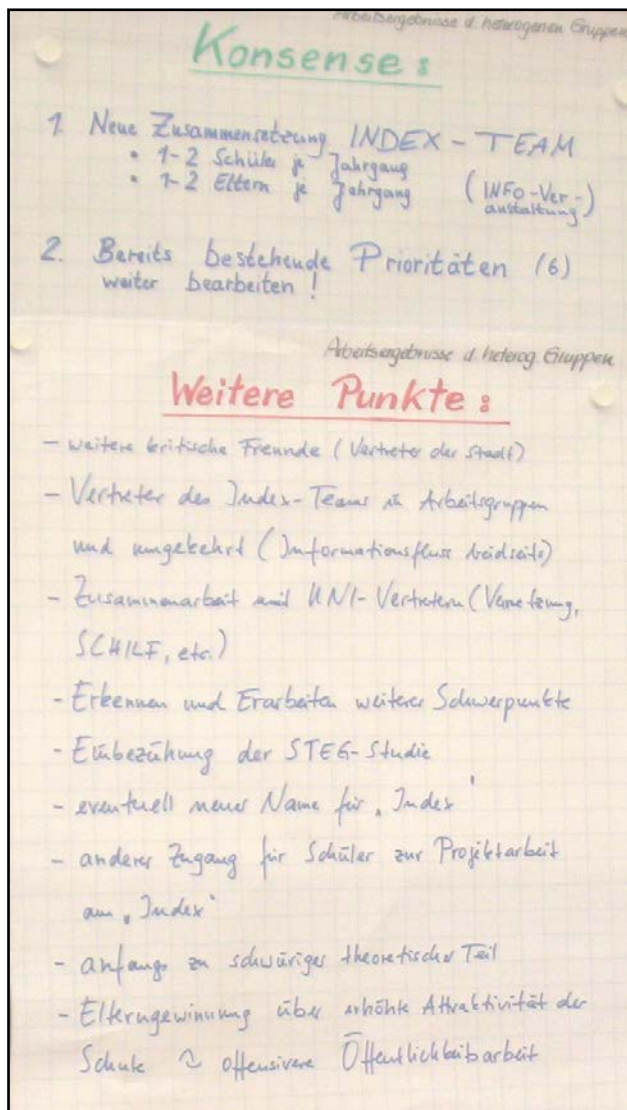 Arbeitsergebnisse d. heterogenen Gruppen
Konsense:
1. Neue Zusammensetzung INDEX-TEAM
• 1-2 Schüler je Jahrgang
• 1-2 Eltern je Jahrgang (INFO-Ver-
anstaltung)
2. Bereits bestehende Prioritäten (6)
weiter bearbeiten!
Arbeitsergebnisse d. heterog. Gruppen
Weitere Punkte:
- weitere kritische Freunde (Vertreter der Stadt)
- Vertreter des Index-Teams in Arbeitsgruppen
und umgekehrt (Informationsfluss beidseits)
- Zusammenarbeit mit UNI-Vertretern (Vernetzung,
SCHILF, etc.)
- Erkennen und Erarbeiten weiterer Schwerpunkte
- Einbeziehung der STEG-Studie
- eventuell neuer Name für „Index"
- anderer Zugang für Schüler zur Projektarbeit
am „Index"
- anfangs zu schwieriger theoretischer Teil
- Elterngewinnung über erhöhte Attraktivität der
Schule ~ offensivere Öffentlichkeitarbeit